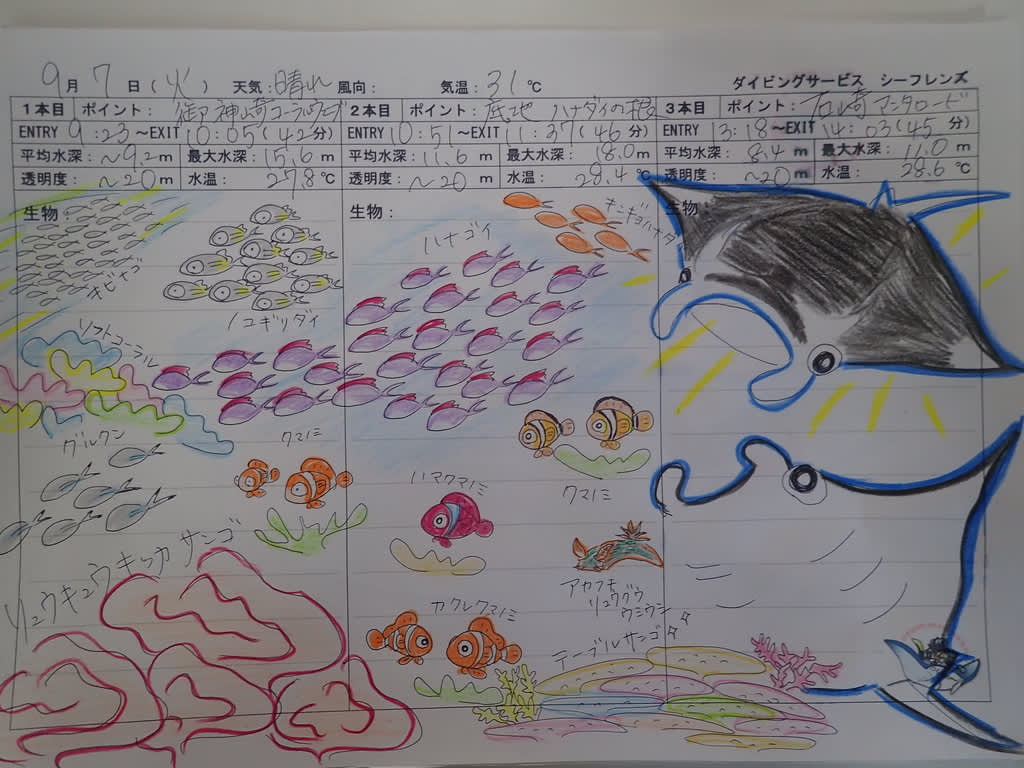 9月7日(火) 天気:晴れ 風向: 気温:31℃ ダイビングサービス シーフレンズ
1本目 ポイント: 御神崎コーラルウェーブ 2本目 ポイント: 底地 ハナダイの根 3本目 ポイント: 石崎マンタロード
ENTRY 9:23~EXIT 10:05(42分) ENTRY 10:51~EXIT 11:37(46分) ENTRY 13:18~EXIT 14:03(45分)
平均水深:~9.2m 最大水深:15.6m 平均水深:11.6m 最大水深:18.0m 平均水深:8.4m 最大水深:11.0m
透明度:~20m 水温:27.8℃ 透明度:~20m 水温:28.4℃ 透明度:~20m 水温:28.6℃
生物 生物: 生物
キビナゴ
ノコギリダイ
ソフトコーラル
グルクン
クマノミ
リュウキュウキッカサンゴ
ハナゴイ
キンギョハナダイ
ハマクマノミ
クマノミ
アカフチ
リュウグウ
ウミウシ
カクレクマノミ
テーブルサンゴ